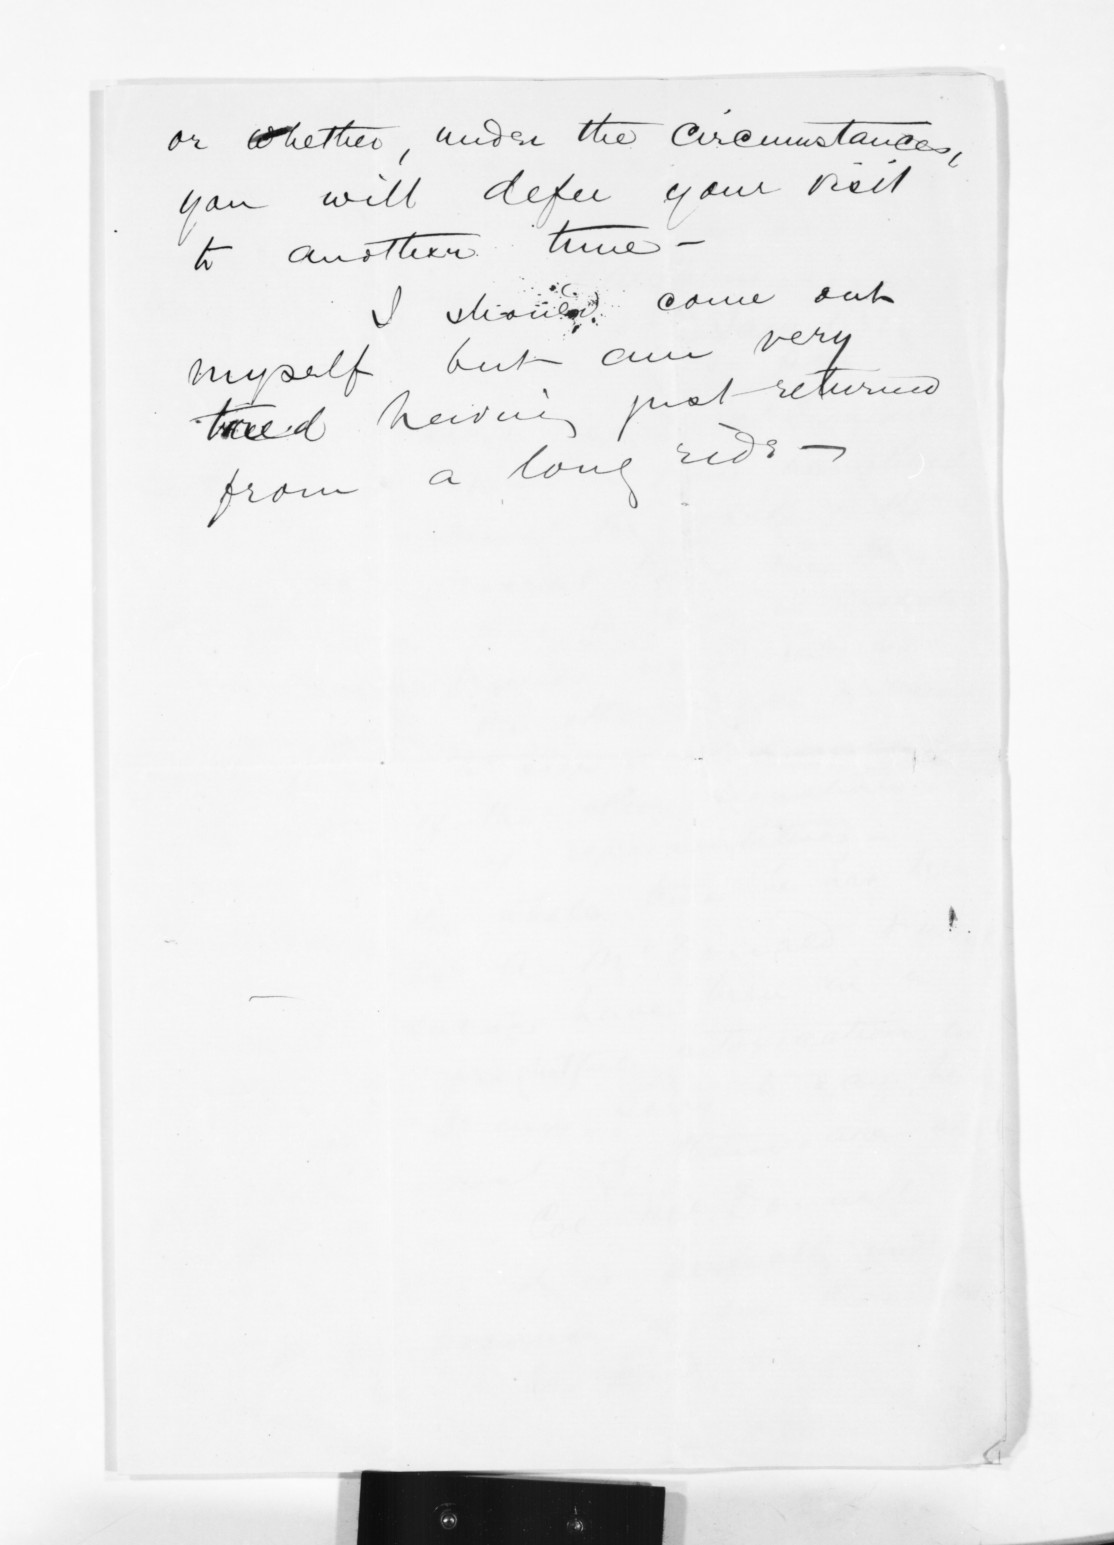 or whether, under the circumstances,
you will defer your visit
to another time—
I should come out
myself but am very
tired having just returned
from a long ride—